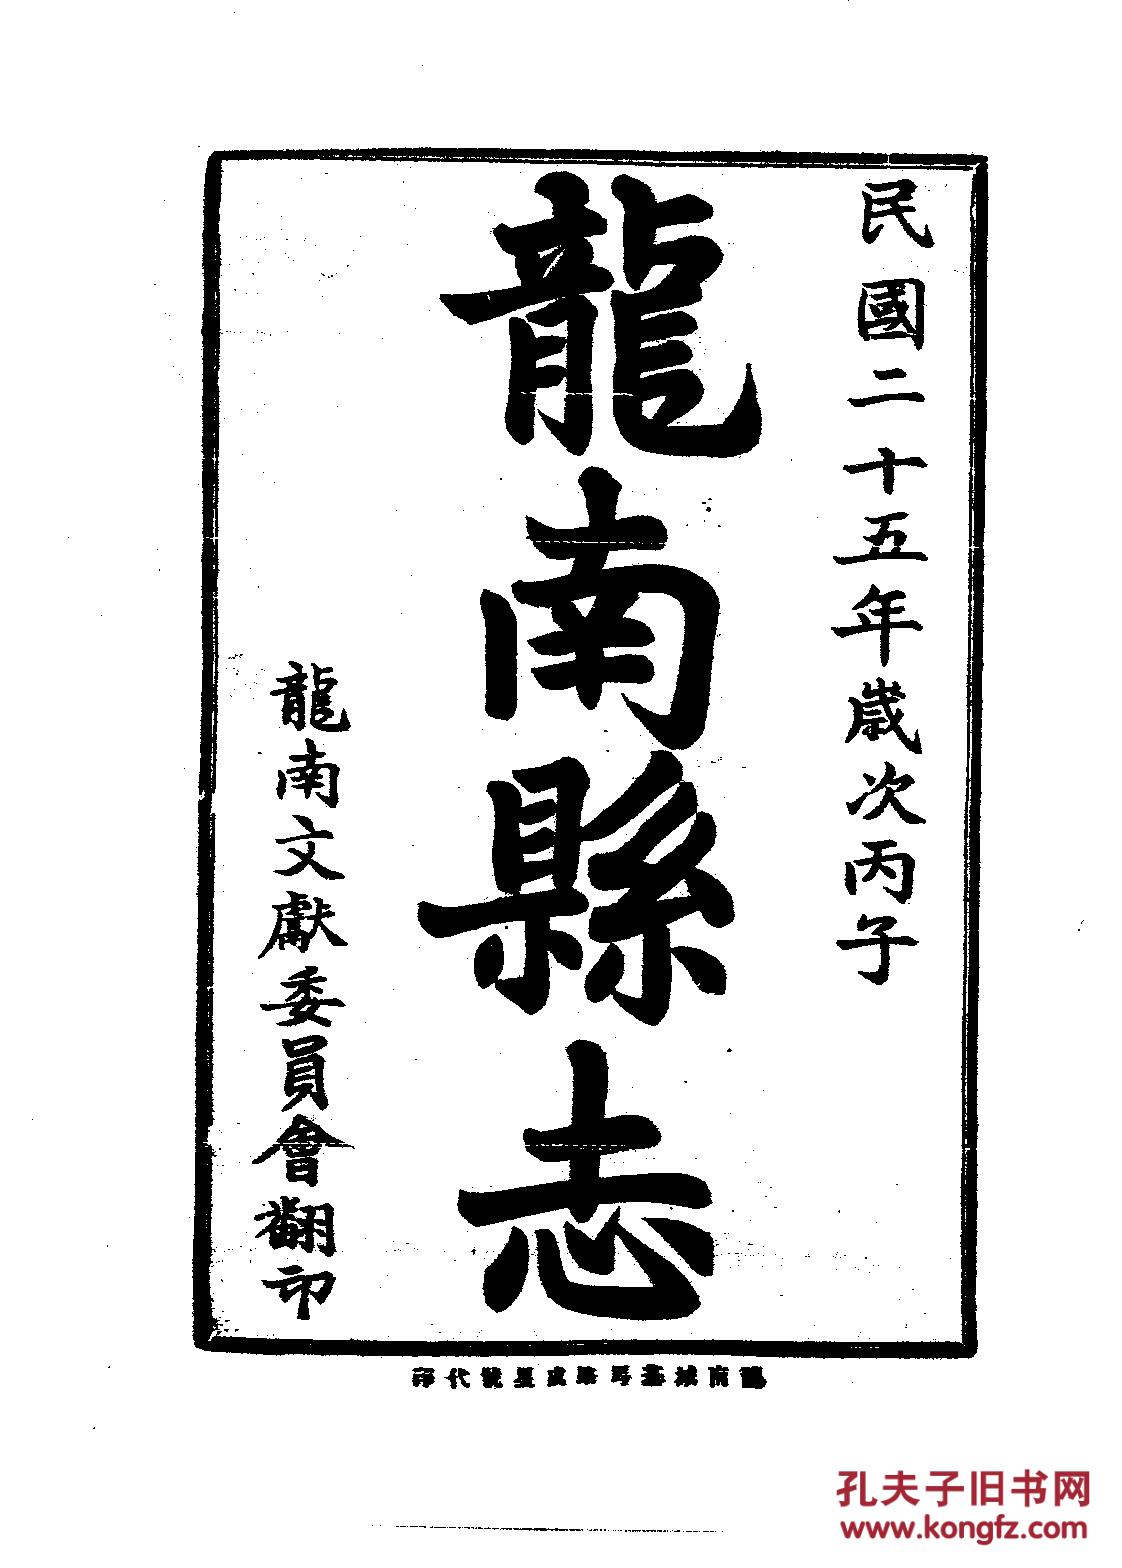 民國二十五年歲次丙子
龍南縣志
龍南文獻委員會翻印
龍南城
號代印
孔夫子旧书网
www.kongfz.com